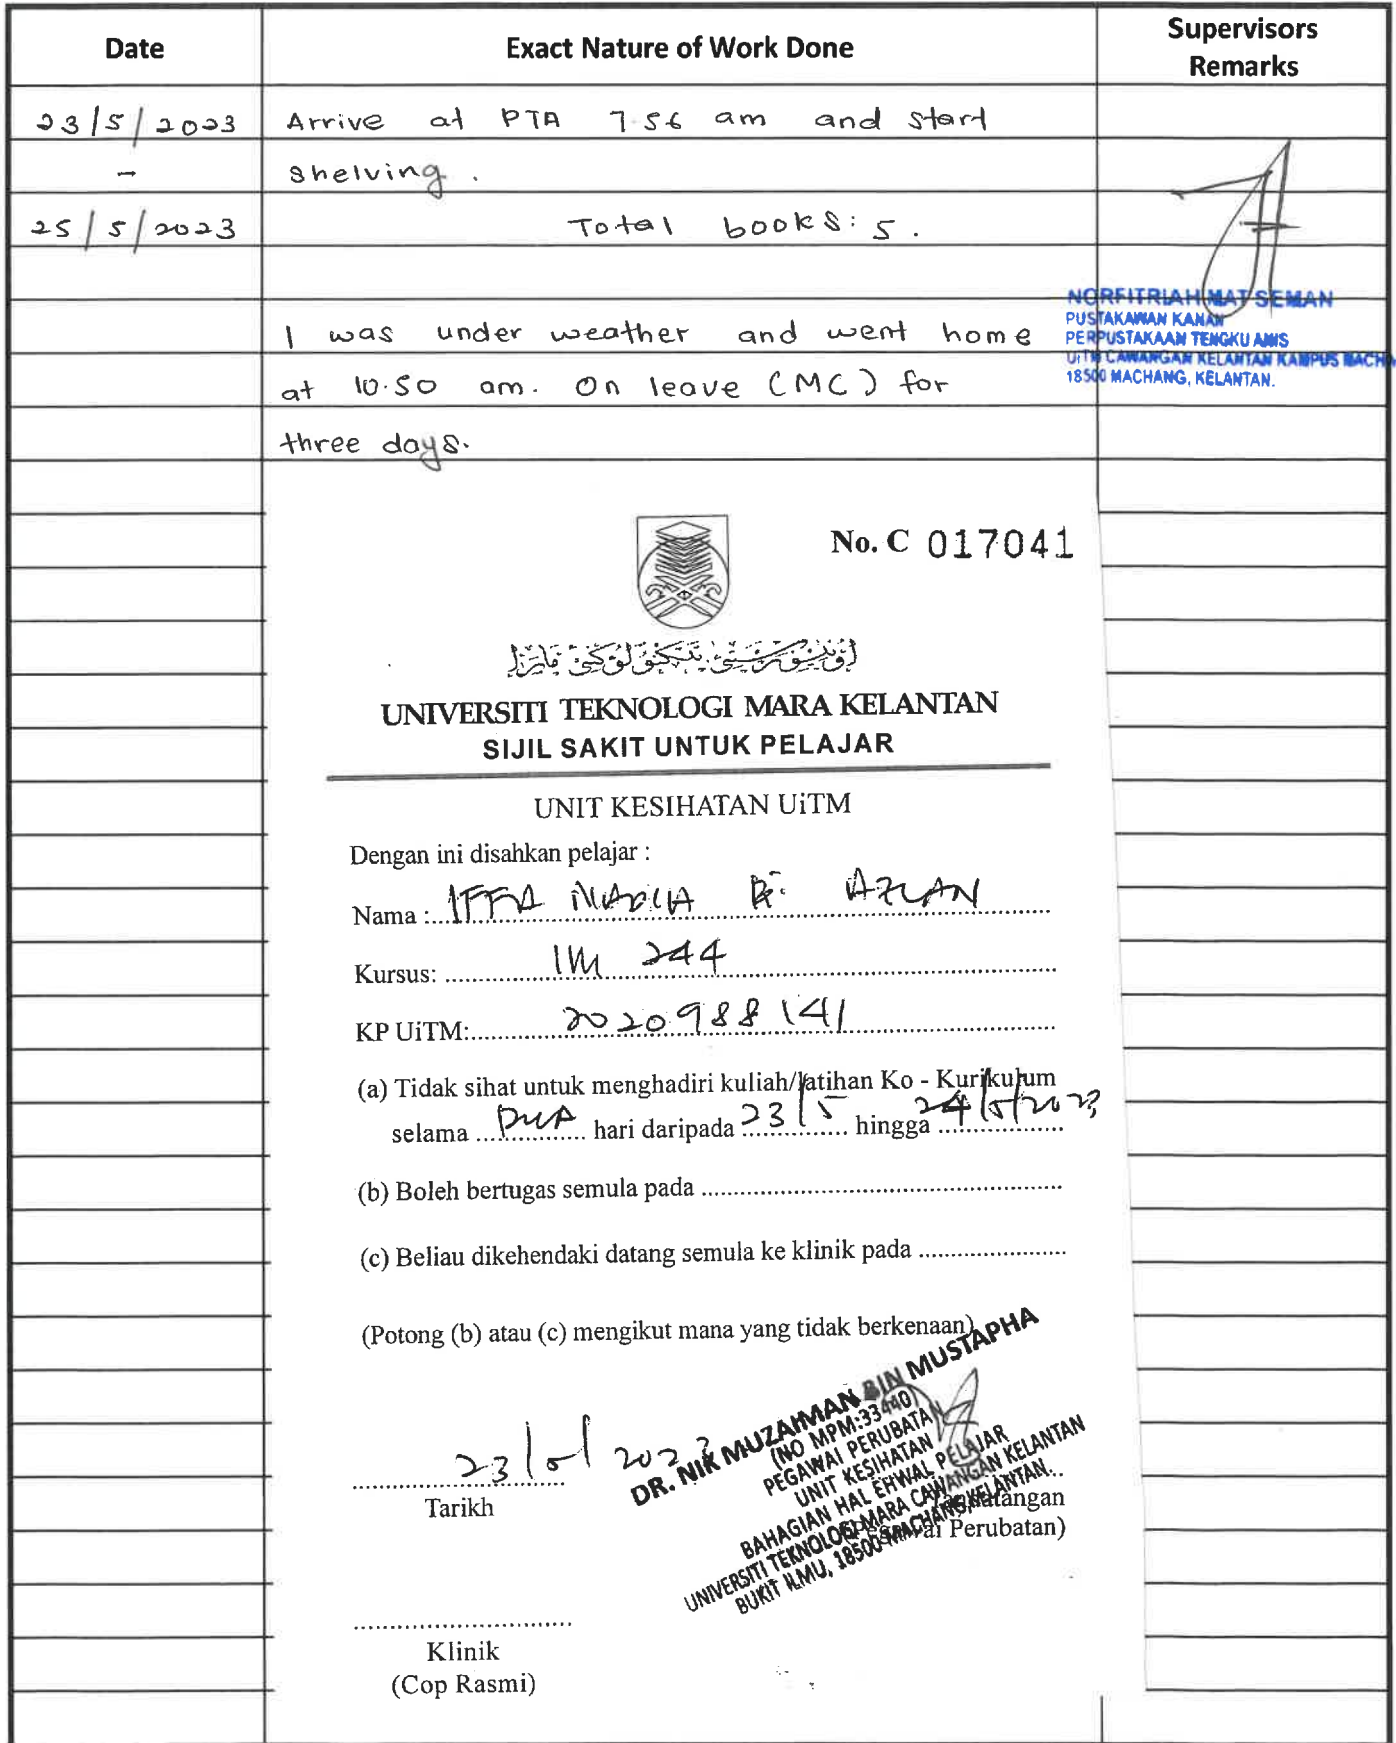 Date Exact Nature of Work Done Supervisors Remarks
23/5/2023 Arrive at PTA 7.56 am and start
- shelving.
25/5/2023 Total books: 5.
NORFITRIAH MAT SEMAN
PUSTAKAWAN KANAN
PERPUSTAKAAN TENGKU ANIS
UiTM CAWANGAN KELANTAN KAMPUS MACHA
18500 MACHANG, KELANTAN.
I was under weather and went home
at 10.50 am. On leave (MC) for
three days.
No. C 017041
اونيۏرسيتي تيكنولوڬي مارا
UNIVERSITI TEKNOLOGI MARA KELANTAN
SIJIL SAKIT UNTUK PELAJAR
UNIT KESIHATAN UiTM
Dengan ini disahkan pelajar :
Nama : IFFA NADIA Bt AZLAN
Kursus: IM 244
KP UiTM: 2020988141
(a) Tidak sihat untuk menghadiri kuliah/latihan Ko - Kurikulum
selama DUA hari daripada 23/5 hingga 24/5/2023
(b) Boleh bertugas semula pada
(c) Beliau dikehendaki datang semula ke klinik pada
(Potong (b) atau (c) mengikut mana yang tidak berkenaan)
23/5/2023
Tarikh
DR. NIK MUZAIMAN BIN MUSTAPHA
(NO MPM:33440)
PEGAWAI PERUBATAN
UNIT KESIHATAN
BAHAGIAN HAL EHWAL PELAJAR
UNIVERSITI TEKNOLOGI MARA CAWANGAN KELANTAN
BUKIT ILMU, 18500 MACHANG, KELANTAN.
Tandatangan
(Pegawai Perubatan)
Klinik
(Cop Rasmi)